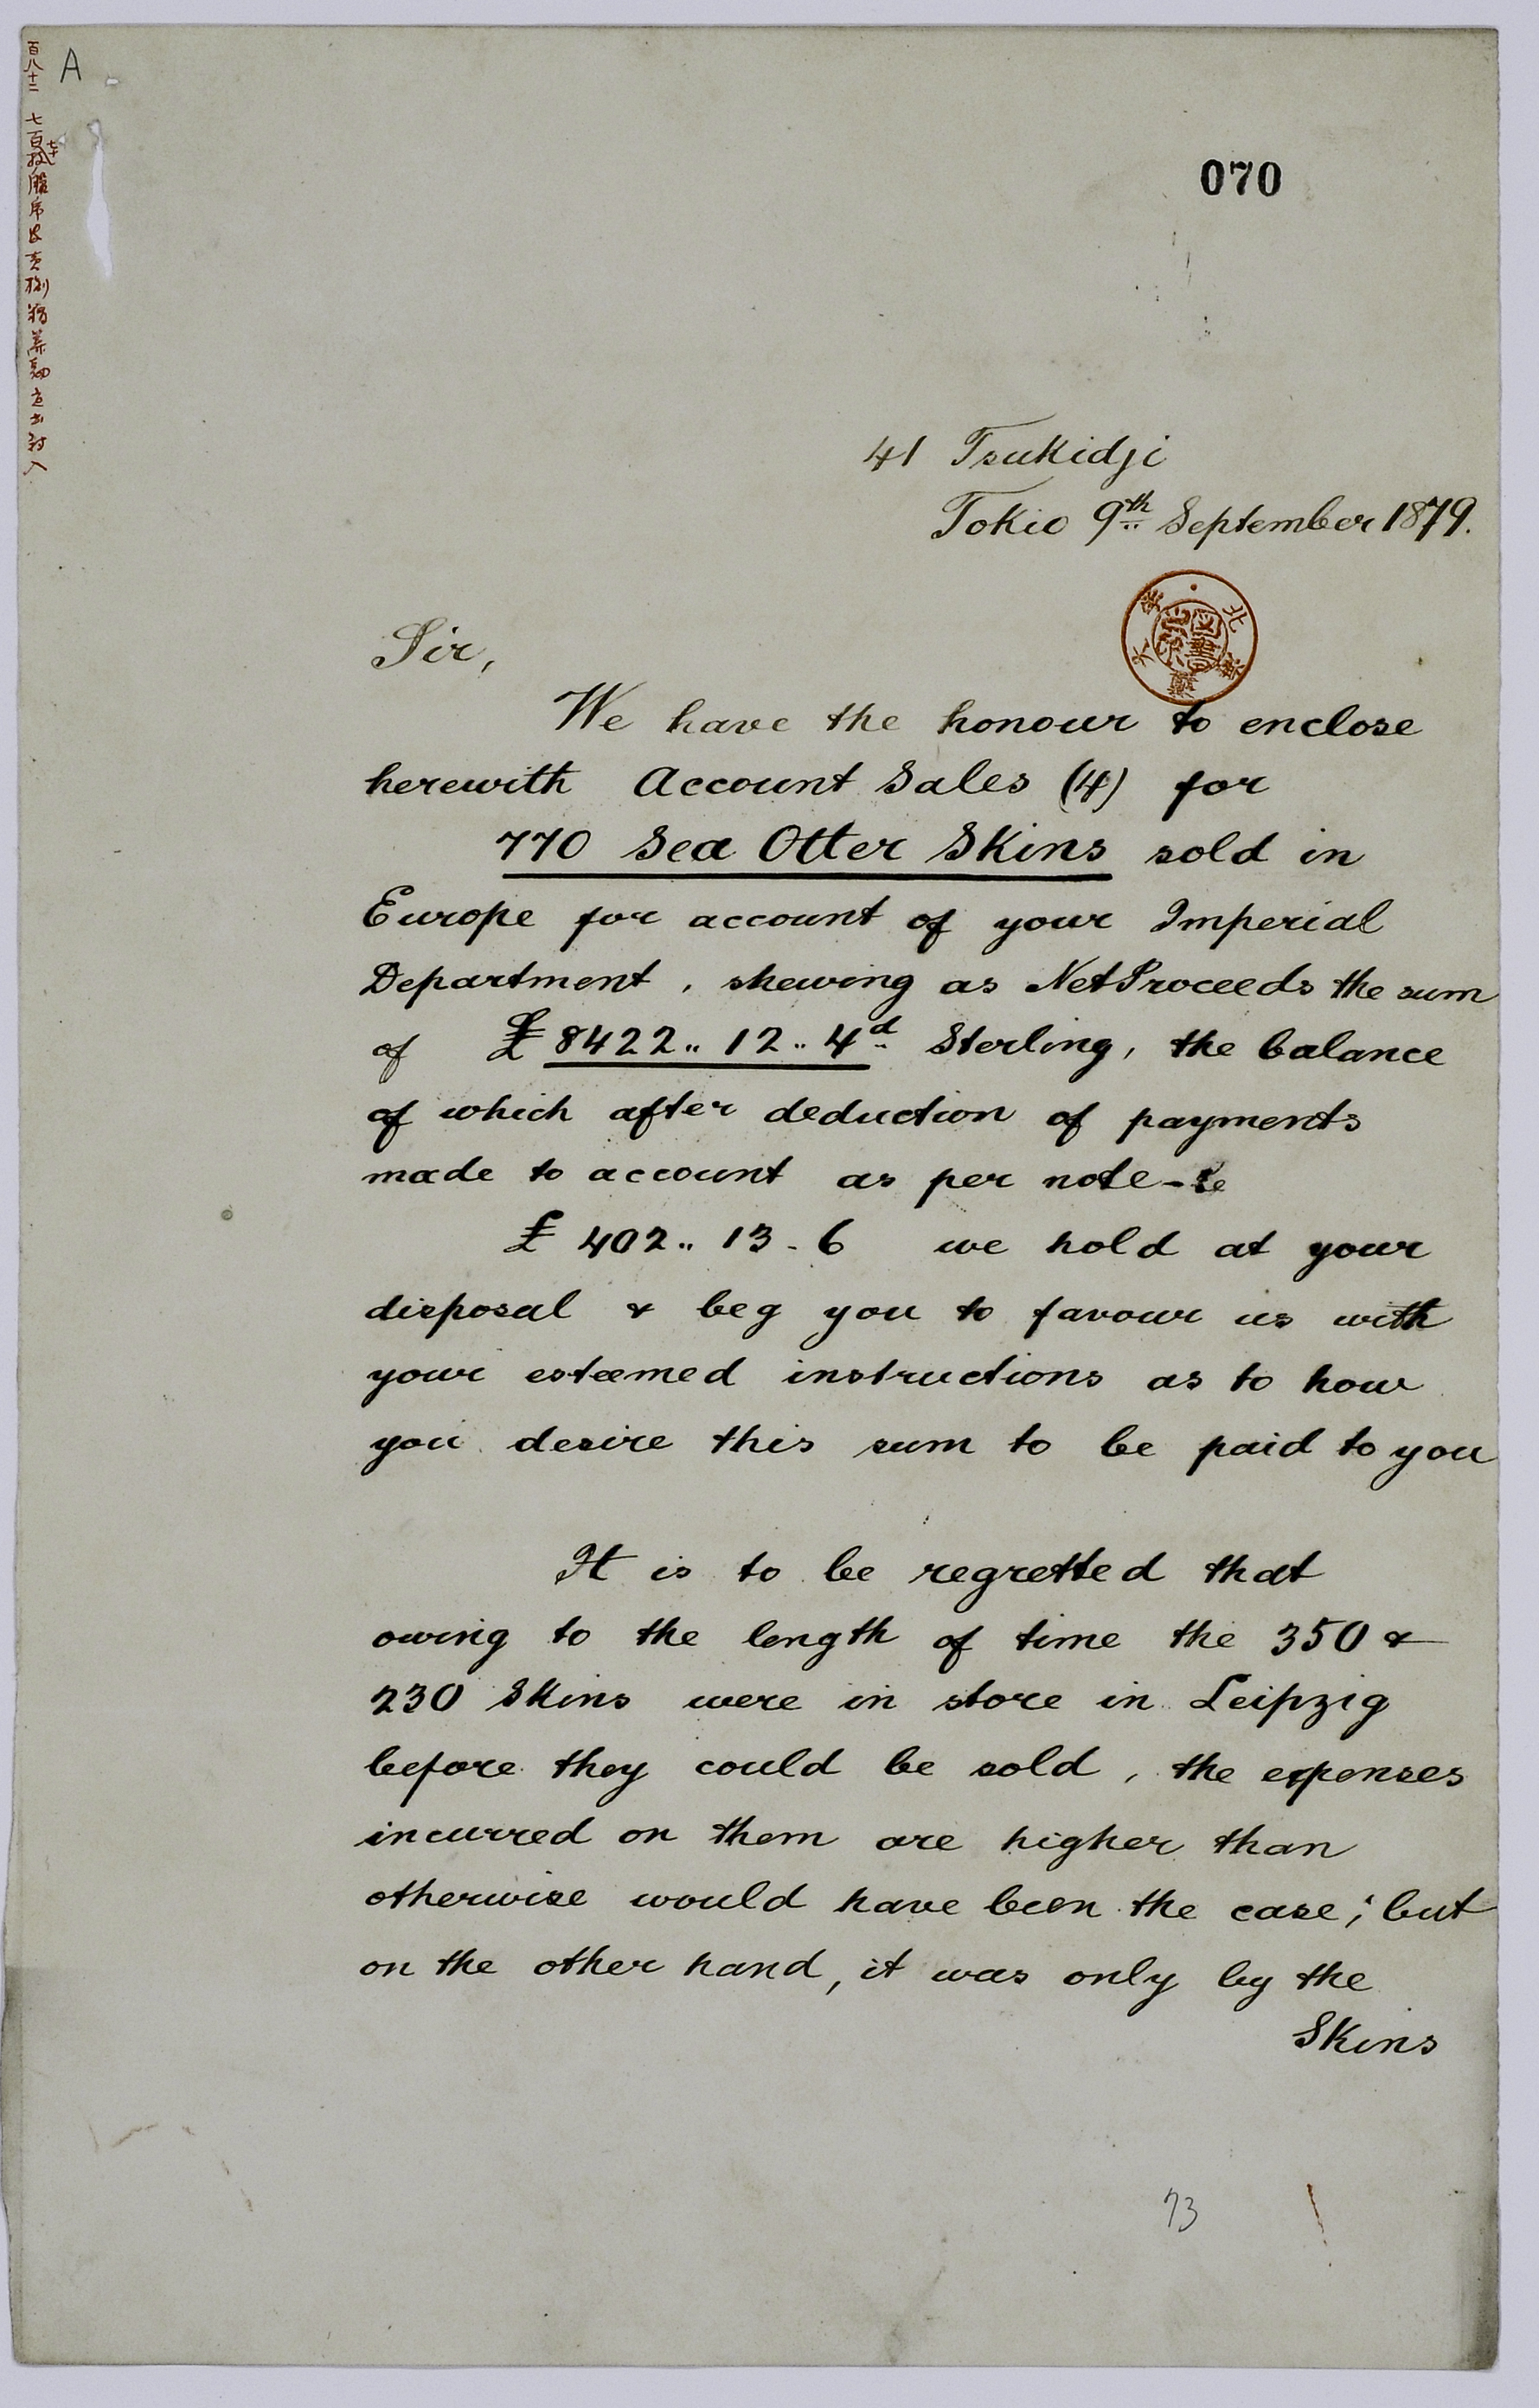 A
070
百八十二
41 Tsukidji
Tokio 9th September 1879.
Sir,
We have the honour to enclose
herewith Account Sales (4) for
770 Sea Otter Skins sold in
Europe for account of your Imperial
Department, shewing as Net Proceeds the sum
of £ 8422.. 12.. 4d Sterling, the balance
of which after deduction of payments
made to account as per note
£ 402.. 13 - 6 we hold at your
disposal & beg you to favour us with
your esteemed instructions as to how
you desire this sum to be paid to you
It is to be regretted that
owing to the length of time the 350 &
230 Skins were in store in Leipzig
before they could be sold, the expenses
incurred on them are higher than
otherwise would have been the case; but
on the other hand, it was only by the
Skins
73